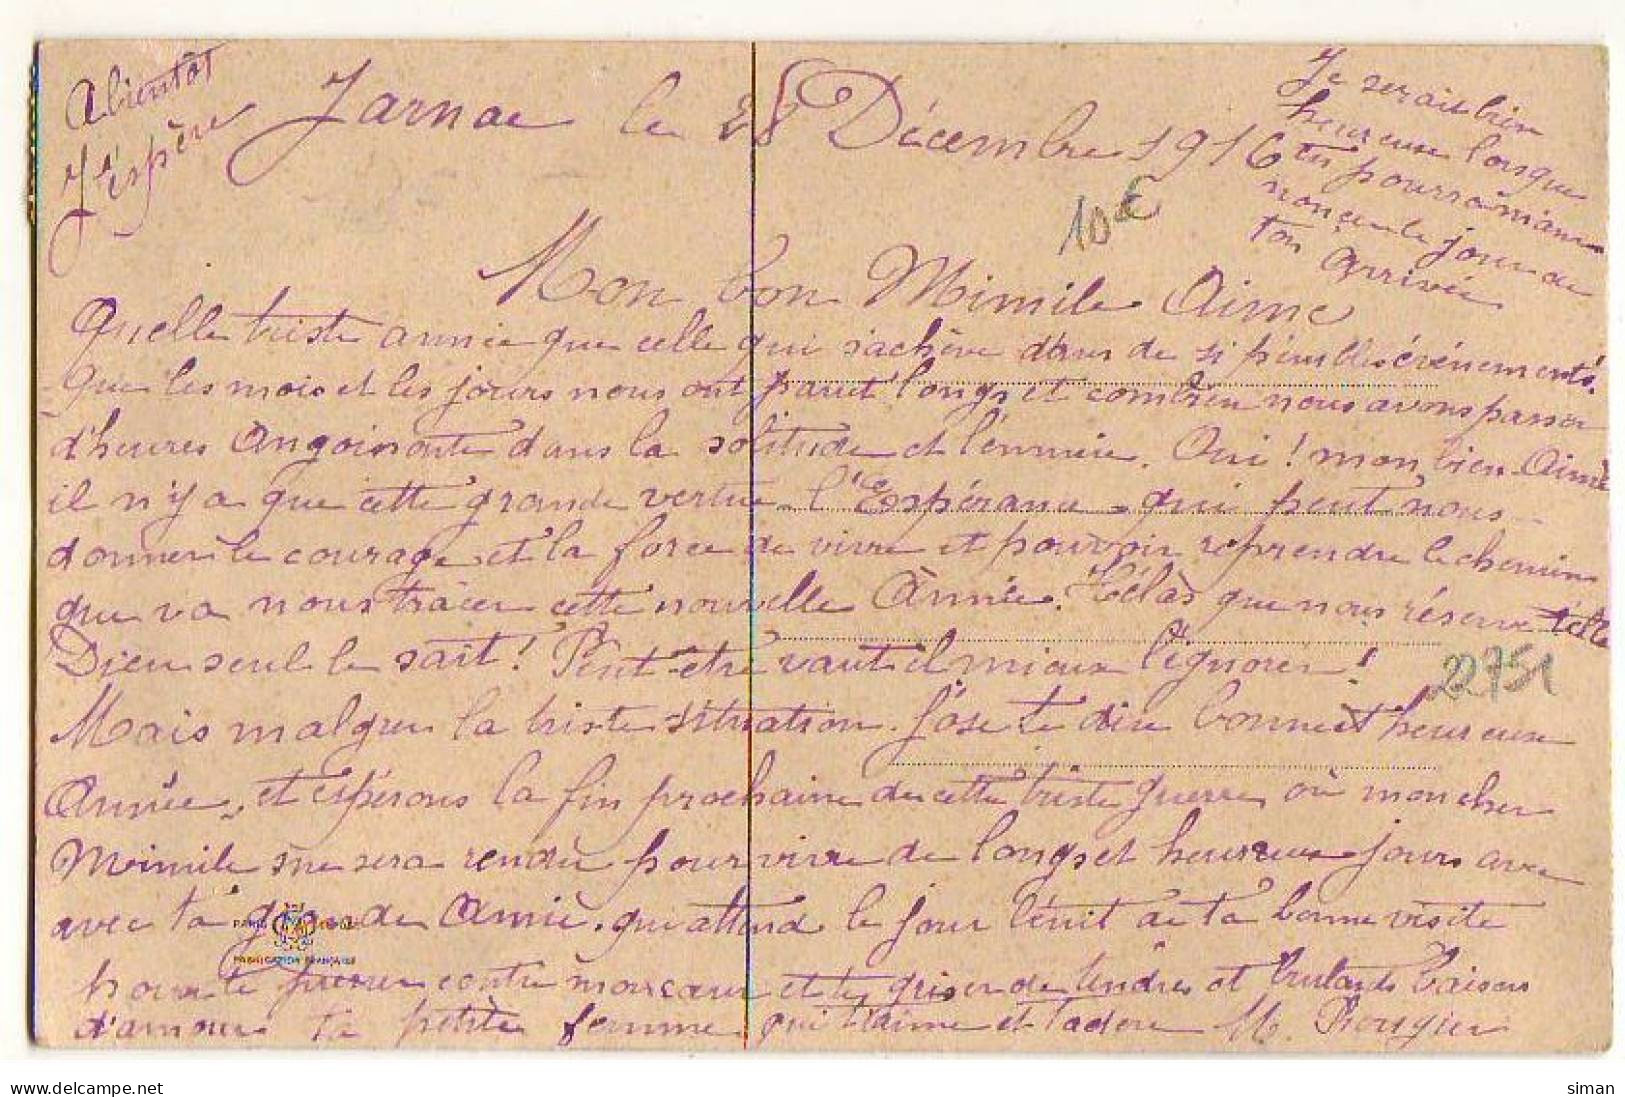 A bientôt
J'éspère
Jarnac le 28 Décembre 1916
Je serais bien
heureuse lorsque
tu pourra m'an
noncer le jour de
ton arrivée
10€
Mon bon Mimile Aimé
Quelle triste année que celle qui s'achève dans de si pénibles événements.
Que les mois et les jours nous ont parut longs et combien nous avons passer
d'heures Angoissante dans la solitude et l'ennuie. Oui! mon bien Aimé
il n'y a que cette grande vertue l'Espérance qui peut nous
donner le courage et la force de vivre et pouvoir reprendre le chemin
que va nous tracer cette nouvelle Année. Hélàs que nous réserve telle
Dieu seul le sait! Peut-etre vaut il mieux l'ignorer!
22751
Mais malgré la triste situation j'ose te dire bonne et heureuse
Année, et éspérons la fin prochaine de cette triste guerre, où mon cher
Mimile me sera rendu pour vivre de longs et heureux jours avec
avec ta grande Amie. qui attend le jour bénit de ta bonne visite
PARIS
FABRICATION FRANÇAISE
pour te presser contre mon cœur et te griser de tendres et brulants baisers
d'amour ta petite femme qui t'aime et t'adore M. Rougier
siman